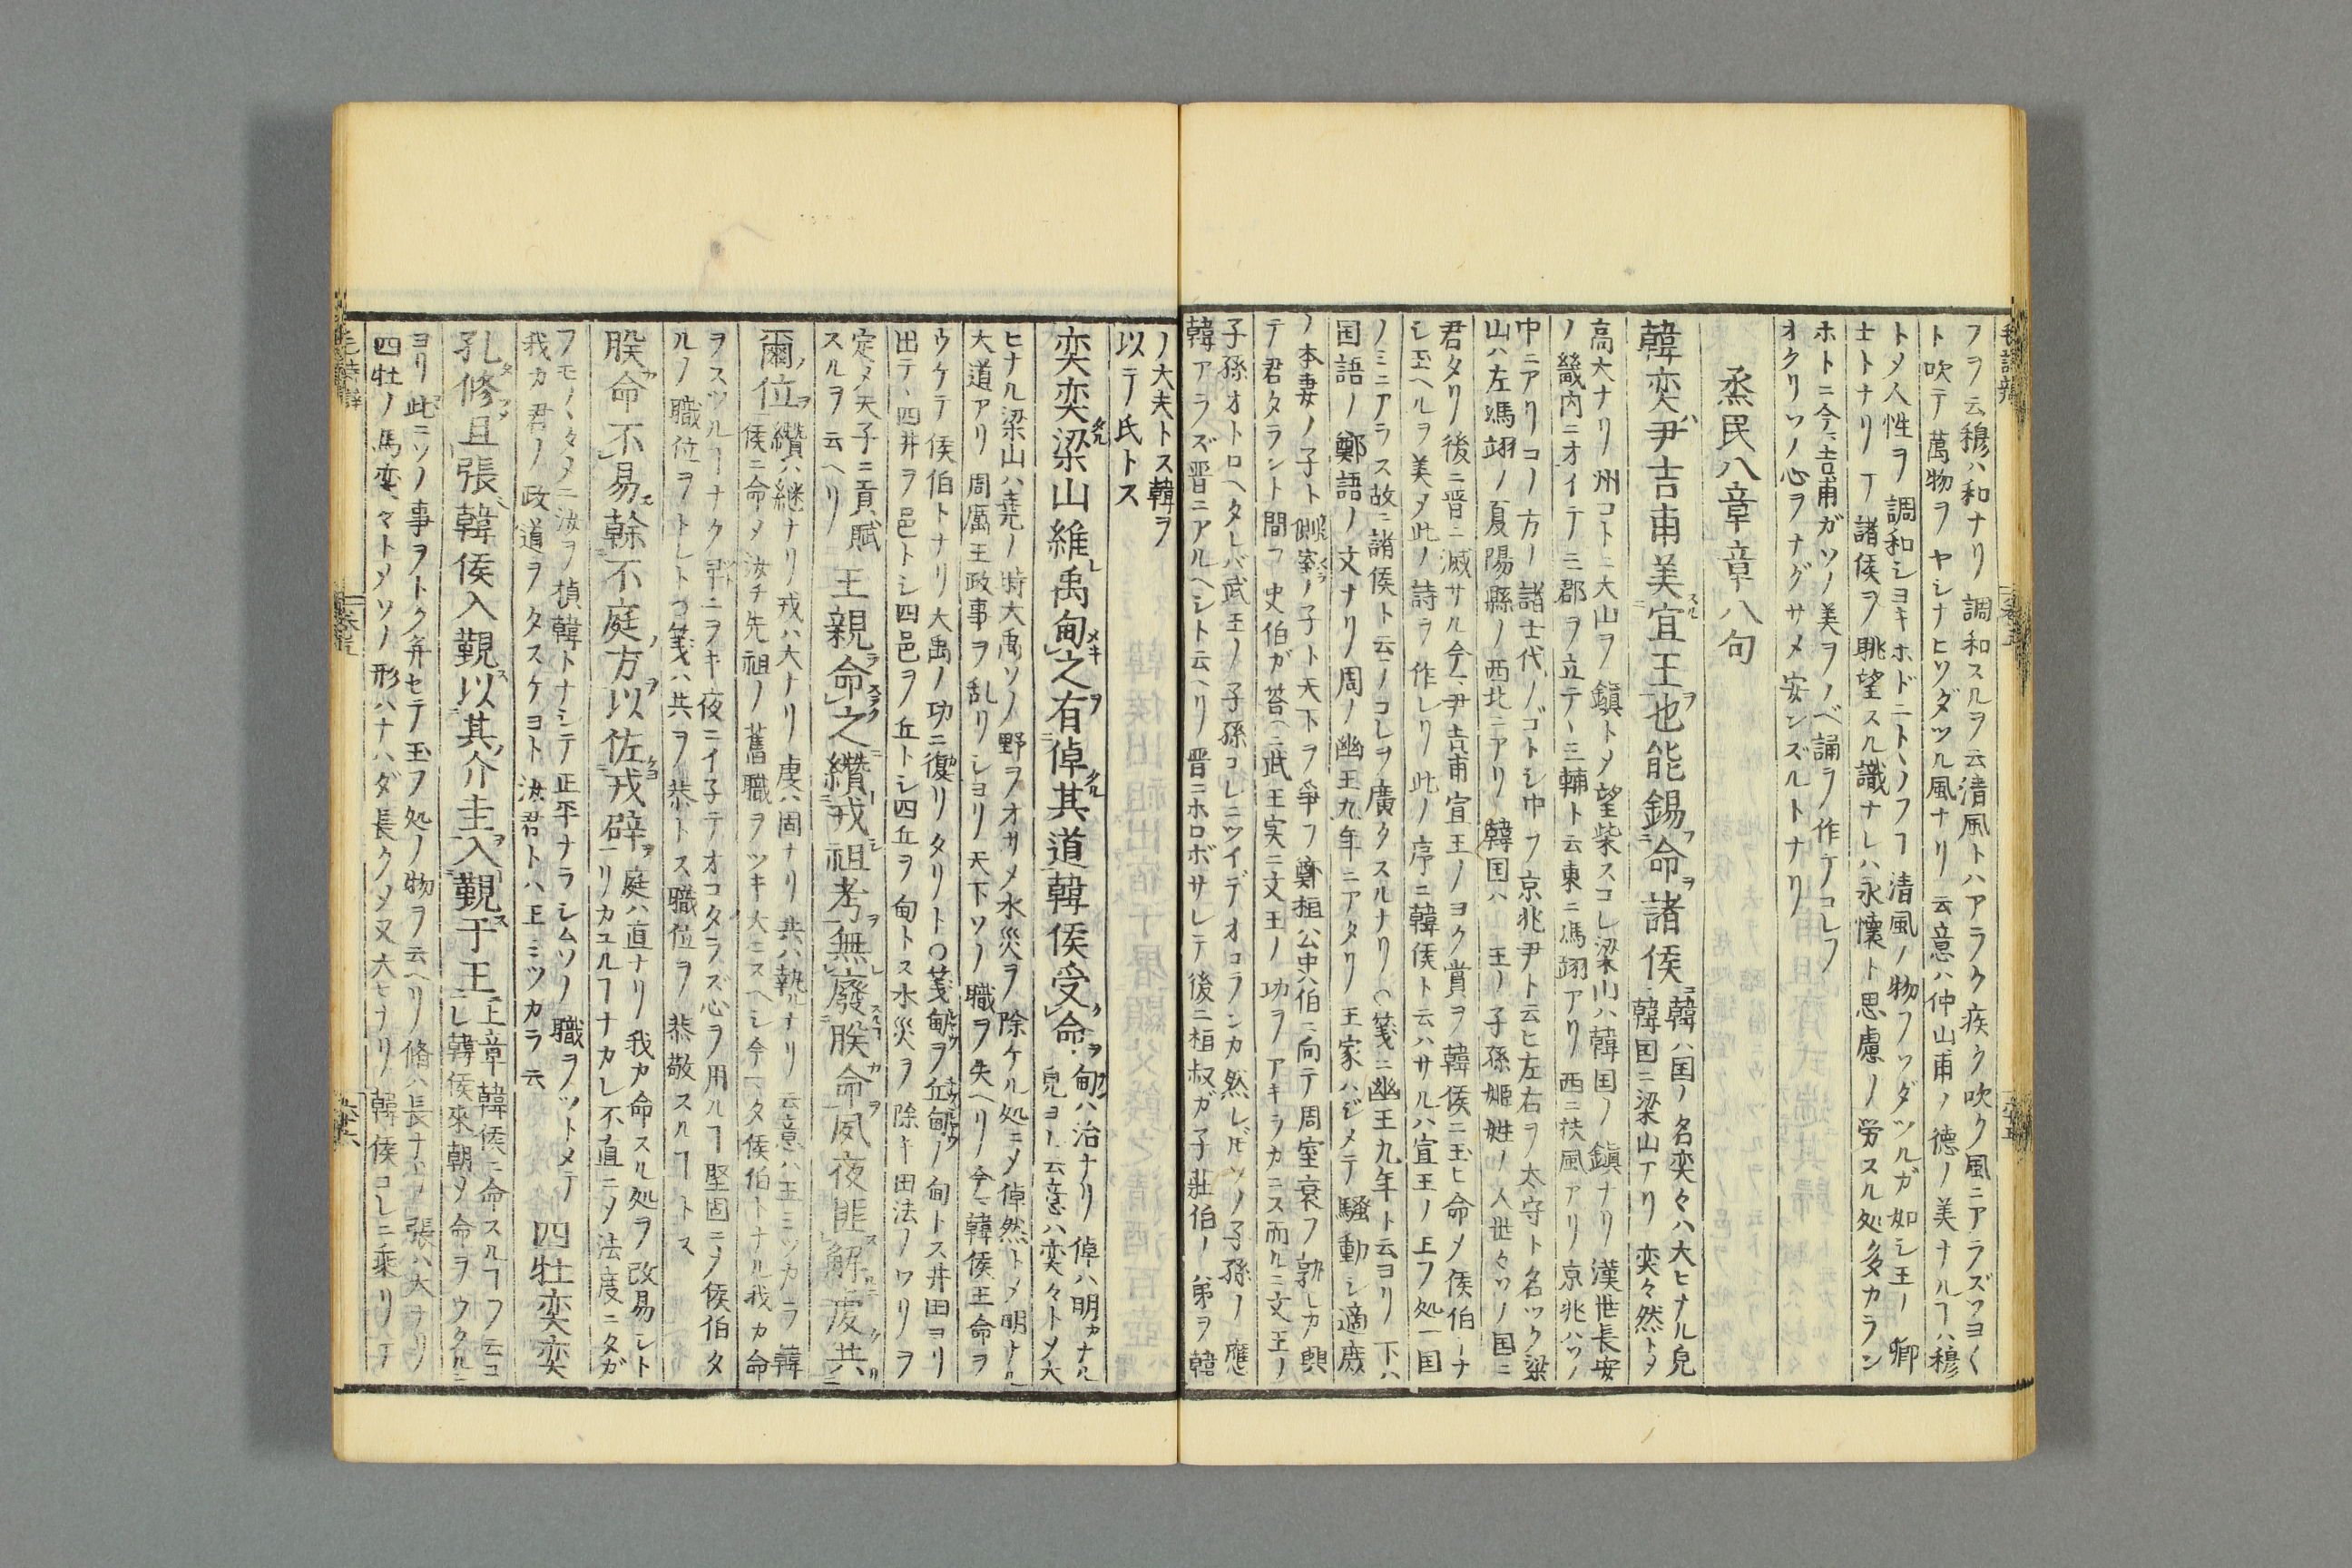 フヲ云穆ハ和ナリ調和スルヲ云清風トハアラク疾ク吹ク風ニアラズツヨく
ト吹テ萬物ヲヤシナヒソダツル風ナリ云意ハ仲山甫ノ徳ノ美ナルヿハ穆
トメ人性ヲ調和シヨキホドニトヽノフヿ清風ノ物フソダツルガ如シ王ノ卿
士トナリテ諸侯ヲ眺望スル識ナレハ永懐ト思慮ノ労スル処多カラン
ホトニ今吉甫ガソノ美ヲノベ誦ヲ作テコレヲ
オクリソノ心ヲナグサメ安ンズルトナリ
烝民八章章八句
韓奕尹吉甫美宣王也能錫命諸侯
韓ハ国ノ名奕々ハ大ヒナル皃
韓国ニ梁山アリ奕々然トメ
高大ナリ州コトニ大山ヲ鎮トメ望柴スコレ梁山ハ韓国ノ鎮ナリ漢世長安
ノ畿内ニオイテ三郡ヲ立テヽ三輔ト云東ニ馮翊アリ西ニ扶風アリ京兆ハソノ
中ニアリコノ方ノ諸士代ノゴトシ中ヲ京兆尹ト云ヒ左右ヲ太守ト名ツク梁
山ハ左馮翊ノ夏陽縣ノ西北ニアリ韓国ハ王ノ子孫姫姓ノ人世々ソノ国ニ
君タリ後ニ晋ニ滅サル今尹吉甫宣王ノヨク賞ヲ韓侯ニ玉ヒ命メ侯伯ーナ
シ玉ヘルヲ美メ此ノ詩ヲ作レリ此ノ序ニ韓侯ト云ハサルハ宣王ノ上フ処一国
ノミニアラス故ニ諸侯ト云ーノコレヲ廣クスルナリ○箋ニ幽王九年ト云ヨリ下ハ
国語ノ鄭語ノ文ナリ周ノ幽王九年ニアタリ王家ハジメテ騒動シ適庶
ノ本妻ノ子ト側室ノ子ト天下ヲ爭フ鄭桓公史伯ニ向テ周室衰フ孰レカ興
テ君タラント間フ史伯ガ答ヘニ武王実ニ文王ノ功ヲアキラカニス而ルニ文王ノ
子孫オトロヘタレバ武王ノ子孫コレニツイデオコランカ然レドモソノ子孫ノ應
韓アラズ晋ニアルヘシト云ヘリ晋ニホロボサレテ後ニ桓叔ガ子莊伯ノ弟ヲ韓
ノ大夫トス韓ヲ
以テ氏トス
奕奕梁山維禹甸之有倬其道韓侯受命
甸ハ治ナリ倬ハ明カナル
皃ヨト云意ハ奕々トメ大
ヒナル梁山ハ堯ノ時大禹ソノ野ヲオサメ水災ヲ除ケル処ニメ倬然トメ明カル
大道アリ周厲王政事ヲ乱リシヨリ天下ソノ職ヲ失ヘリ今韓侯王命ヲ
ウケテ侯伯トナリ大禹ノ功ニ復リタリト○箋甸ヲ丘甸ノ甸トス井田ヨリ
出テヽ四井ヲ邑トシ四邑ヲ丘トシ四丘ヲ甸トス水災ヲ除キ田法ノワリヲ
定メ天子ニ貢賦
スルヲ云ヘリ
王親命之纘戎祖考無廢朕命夙夜匪解虔共
爾位
纘ハ継ナリ戎ハ大ナリ虔ハ固ナリ共ハ執ルナリ云意ハ王ミツカラ韓
侯ニ命メ汝チ先祖ノ舊職ヲツキ大ニスヘシ今マタ侯伯トナル我カ命
ヲスツルヿナク早ニヲキ夜ニイ子テオコタラズ心ヲ用ルヿ堅固ニメ侯伯タ
ルノ職位ヲトレトつ箋ハ共ヲ恭トス職位ヲ恭敬スルヿトス
朕命不易榦不庭方以佐戎辟
庭ハ直ナリ我カ命スル処ヲ改易シト
リカユルヿナカレ不直ニメ法度ニタガ
フモノヽタメニ汝ヲ楨韓トナシテ正平ナラシムソノ職ヲツトメテ
我カ君ノ政道ヲタスケヨト汝君トハ王ミツカラ云
四牡奕奕
孔修且張韓侯入覲以其介圭入覲于王
上章韓侯ニ命スルヿフ云コ
レ韓侯來朝メ命ヲウクルニ
ヨリ此ニソノ事ヲトク弁セテ玉フ処ノ物ヲ云ヘリ脩ハ長ナリ張ハ大ヲリ
四牡ノ馬奕々トメソノ形ハナハダ長クメ又大ヒナリ韓侯コレニ乗リテ